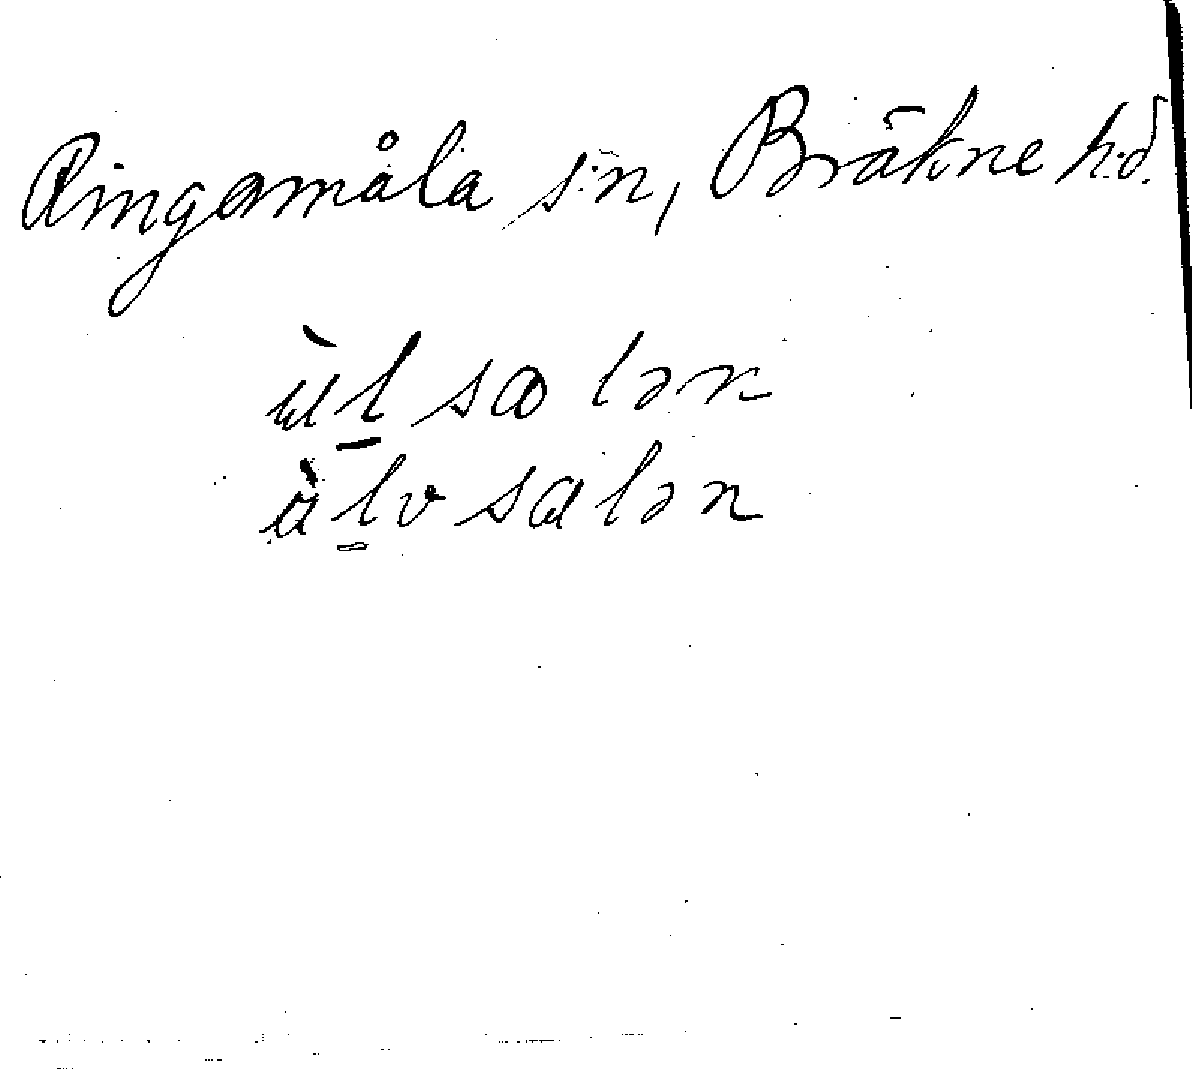 Ringamåla s:n, Bräkne h:d.
àl̲salən
àl̲vsalən